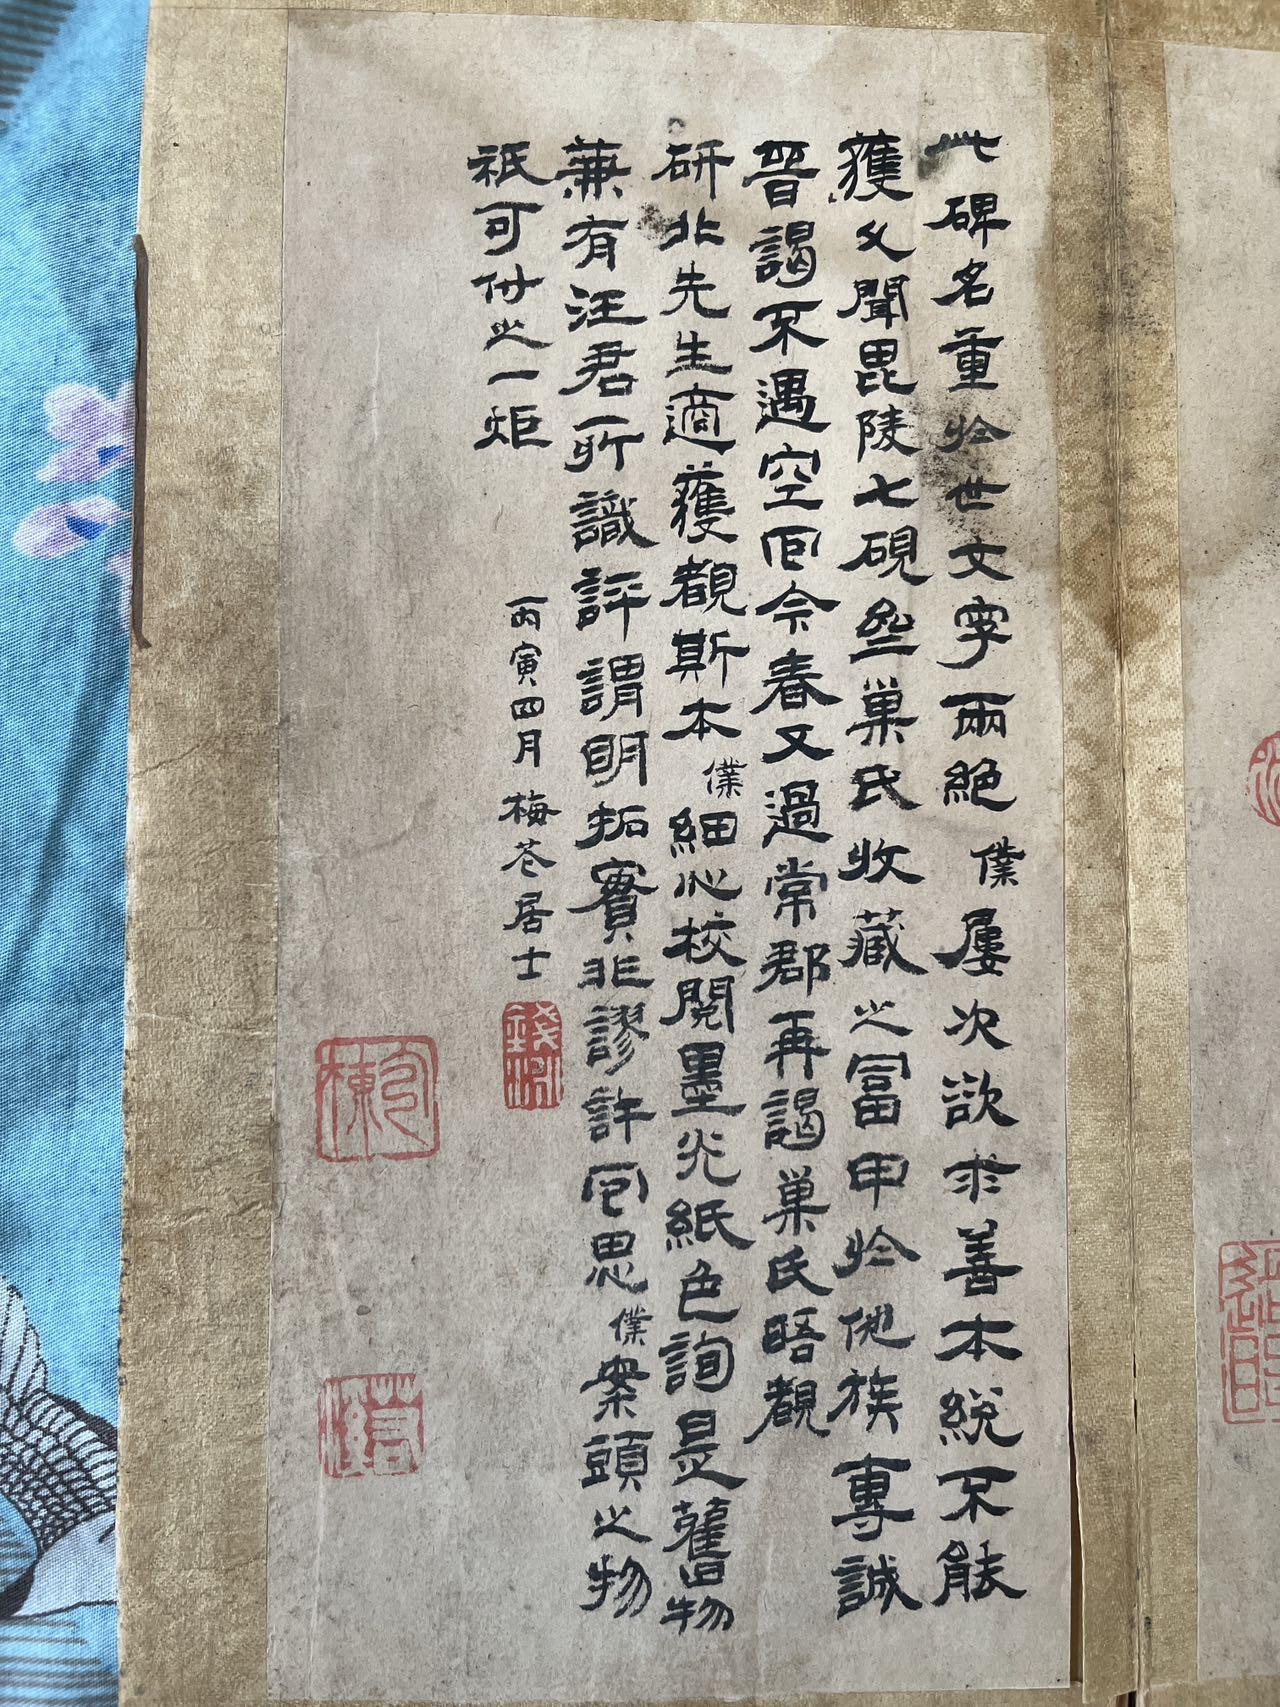 此碑名重於世文字兩絕僕屢次欲求善本總不能
獲久聞毘陵七硯盦巢氏收藏之富甲於他族專誠
晉謁不遇空回今春又過常郡再謁巢氏晤觀
研北先生適獲觀斯本僕細心校閱墨光紙色詢是舊物
兼有汪君所識評謂明拓實非謬許回思僕案頭之物
祇可付之一炬
丙寅四月梅花居士